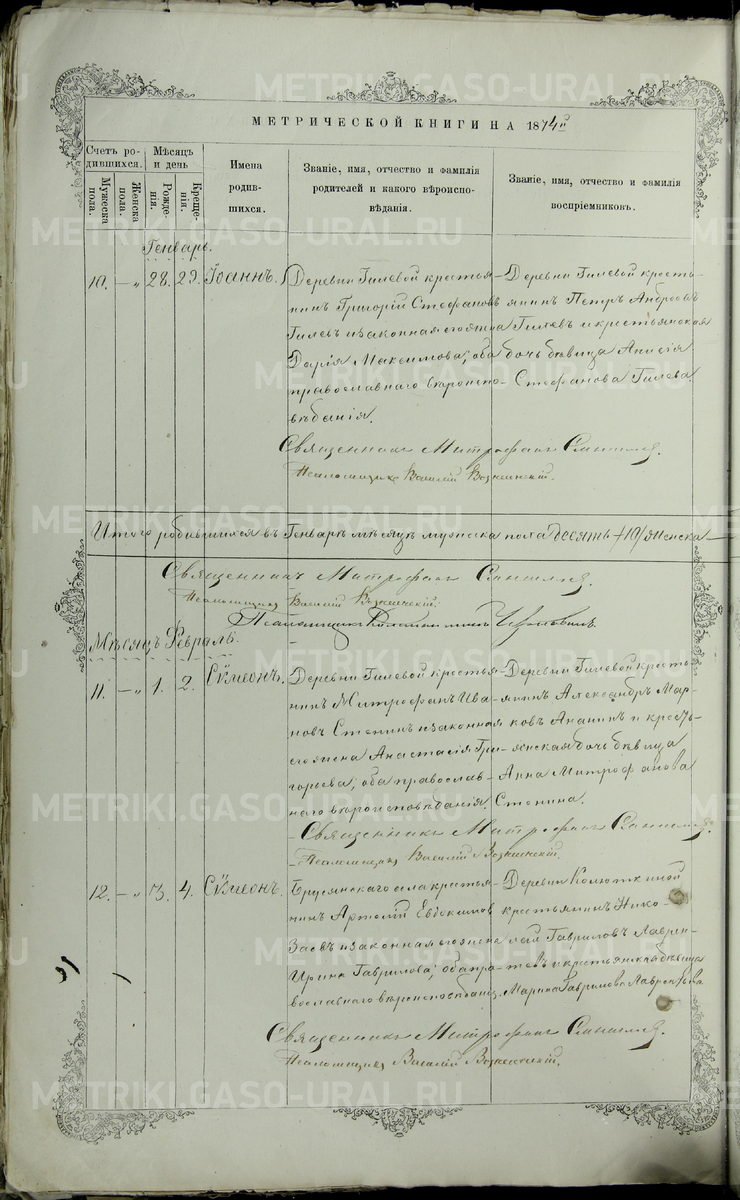 МЕТРИЧЕСКОЙ КНИГИ НА 1874й
Счетъ родившихся.
Мужеска пола.
Женска пола.
Мѣсяцъ и день
Рожденія.
Крещенія.
Имена родившихся.
Званіе, имя, отчество и фамилія родителей и какого вѣроисповѣданія.
Званіе, имя, отчество и фамилія воспріемниковъ.
Генварь.
10. — „ 28. 29. Іоаннъ.
Деревни Гилевой крестья-
нинъ Григорій Стефановъ
Гилевъ и законная его жена
Дарія Максимова, оба
православнаго вѣроиспо-
вѣданія.
Деревни Гилевой кресть-
янинъ Петръ Амвросіевъ
Гилевъ и крестьянская
дочь дѣвица Анисія
Стефанова Гилева.
Священникъ Митрофанъ
Псаломщикъ Василій Вознесенскій.
Итого родившихся въ Генварѣ мѣсяцѣ мужеска пола десять /10/ женска —
Священникъ Митрофанъ
Псаломщикъ Василій Вознесенскій.
Псаломщикъ
Мѣсяцъ Февраль.
11. — „ 1. 2. Сѵмеонъ.
Деревни Гилевой крестья-
нинъ Митрофанъ Ива-
новъ Стенинъ и законная
его жена Анастасія Гри-
горьева, оба православ-
наго вѣроисповѣданія.
Деревни Гилевой кресть-
янинъ Александръ Мар-
ковъ Ананьинъ и кресть-
янская дочь дѣвица
Анна Митрофанова
Стенина.
Священникъ Митрофанъ
Псаломщикъ Василій Вознесенскій.
12. — „ 3. 4. Сѵмеонъ.
Брусянскаго села крестья-
нинъ Артемій Евдокимовъ
Заевъ и законная его жена
Ирина Гаврилова, оба пра-
вославнаго вѣроисповѣданія.
Деревни Колюткиной
крестьянинъ Нико-
лай Гавриловъ Лаврен-
тьевъ и крестьянская дѣвица
Марина Гаврилова Лаврентьева
Священникъ Митрофанъ
Псаломщикъ Василій Вознесенскій.
METRIKI.GASO-URAL.RU